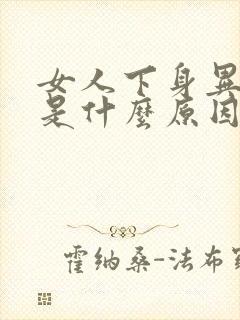 女人下身异
是什麼原因
霍纳桑-法布